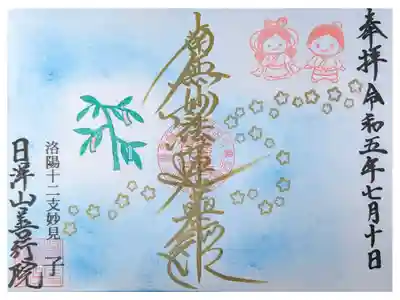 奉拝 令和五年七月十日
南無妙法蓮華経
洛陽十二支妙見 子
日洋山善行院